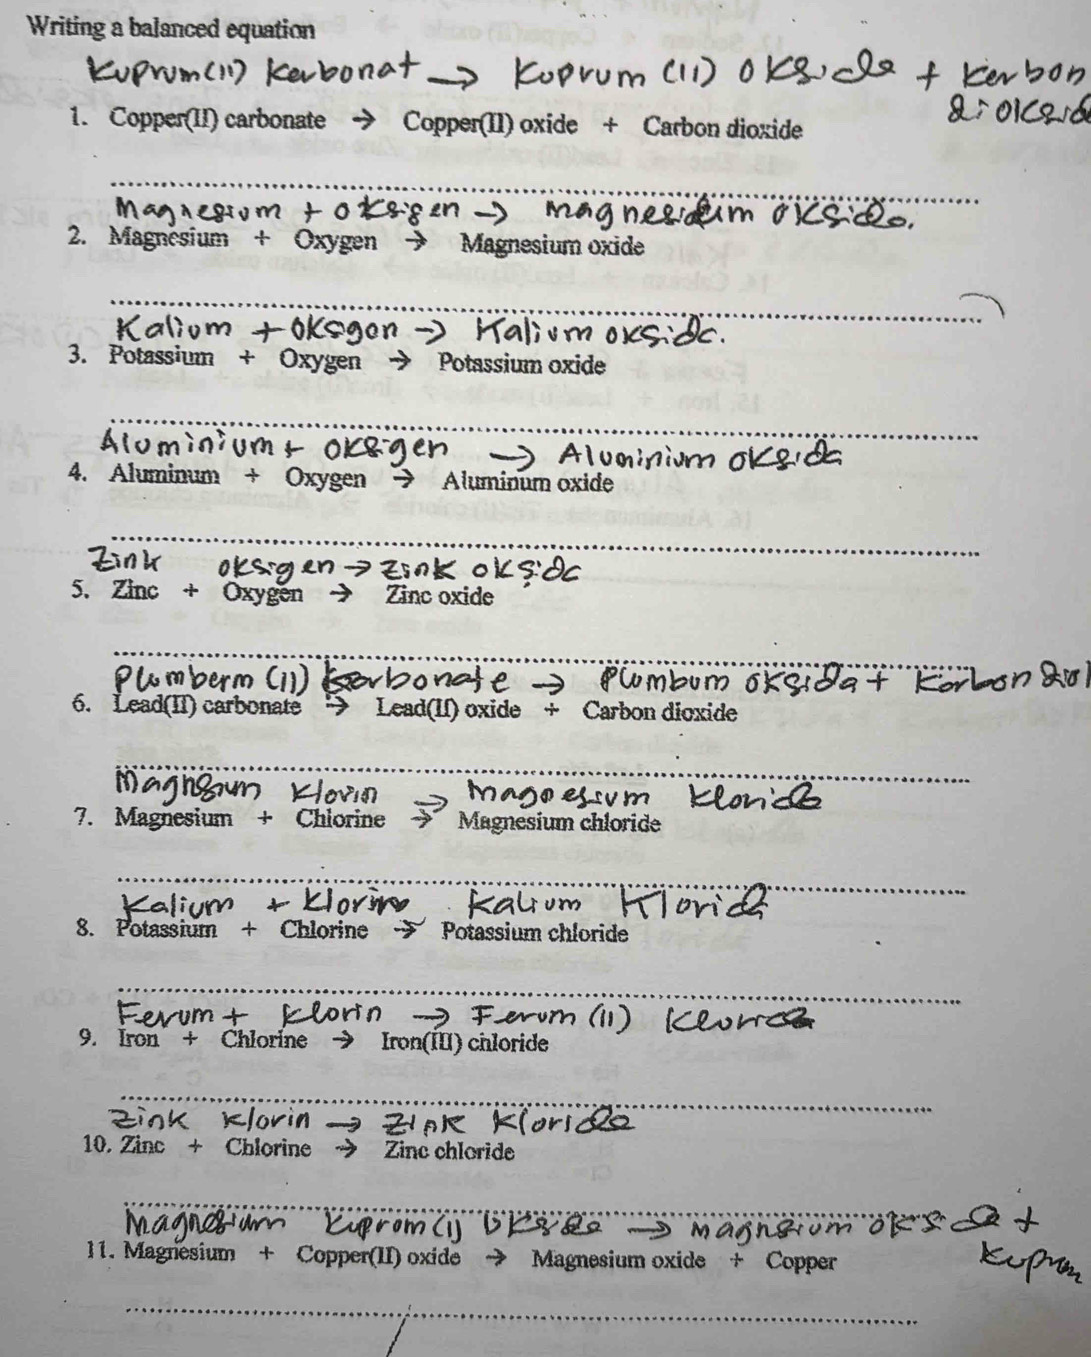 Writing a balanced equation
Kuprum(II) karbonat → Kuprum (II) okside + karbon
dioksid
1. Copper(II) carbonate → Copper(II) oxide + Carbon dioxide
Magnesium + oksigen → magnesium okside.
2. Magnesium + Oxygen → Magnesium oxide
Kalium + oksgen → Kalium okside.
3. Potassium + Oxygen → Potassium oxide
Aluminium + oksigen → Aluminium oksida
4. Aluminum + Oxygen → Aluminum oxide
Zink oksigen → zink okside
5. Zinc + Oxygen → Zinc oxide
Plumberm (II) karbonate → Plumbum oksida + karbon diok
6. Lead(II) carbonate → Lead(II) oxide + Carbon dioxide
klorin → magnesium kloride
7. Magnesium + Chlorine → Magnesium chloride
Kalium + klorin kalium klorida
8. Potassium + Chlorine → Potassium chloride
Ferum + klorin → Ferum (II)
9. Iron + Chlorine → Iron(III) chloride
Zink klorin → zink kloride
10. Zinc + Chlorine → Zinc chloride
Magnesium okside → magnesium okside +
11. Magnesium + Copper(II) oxide → Magnesium oxide + Copper
kuprum